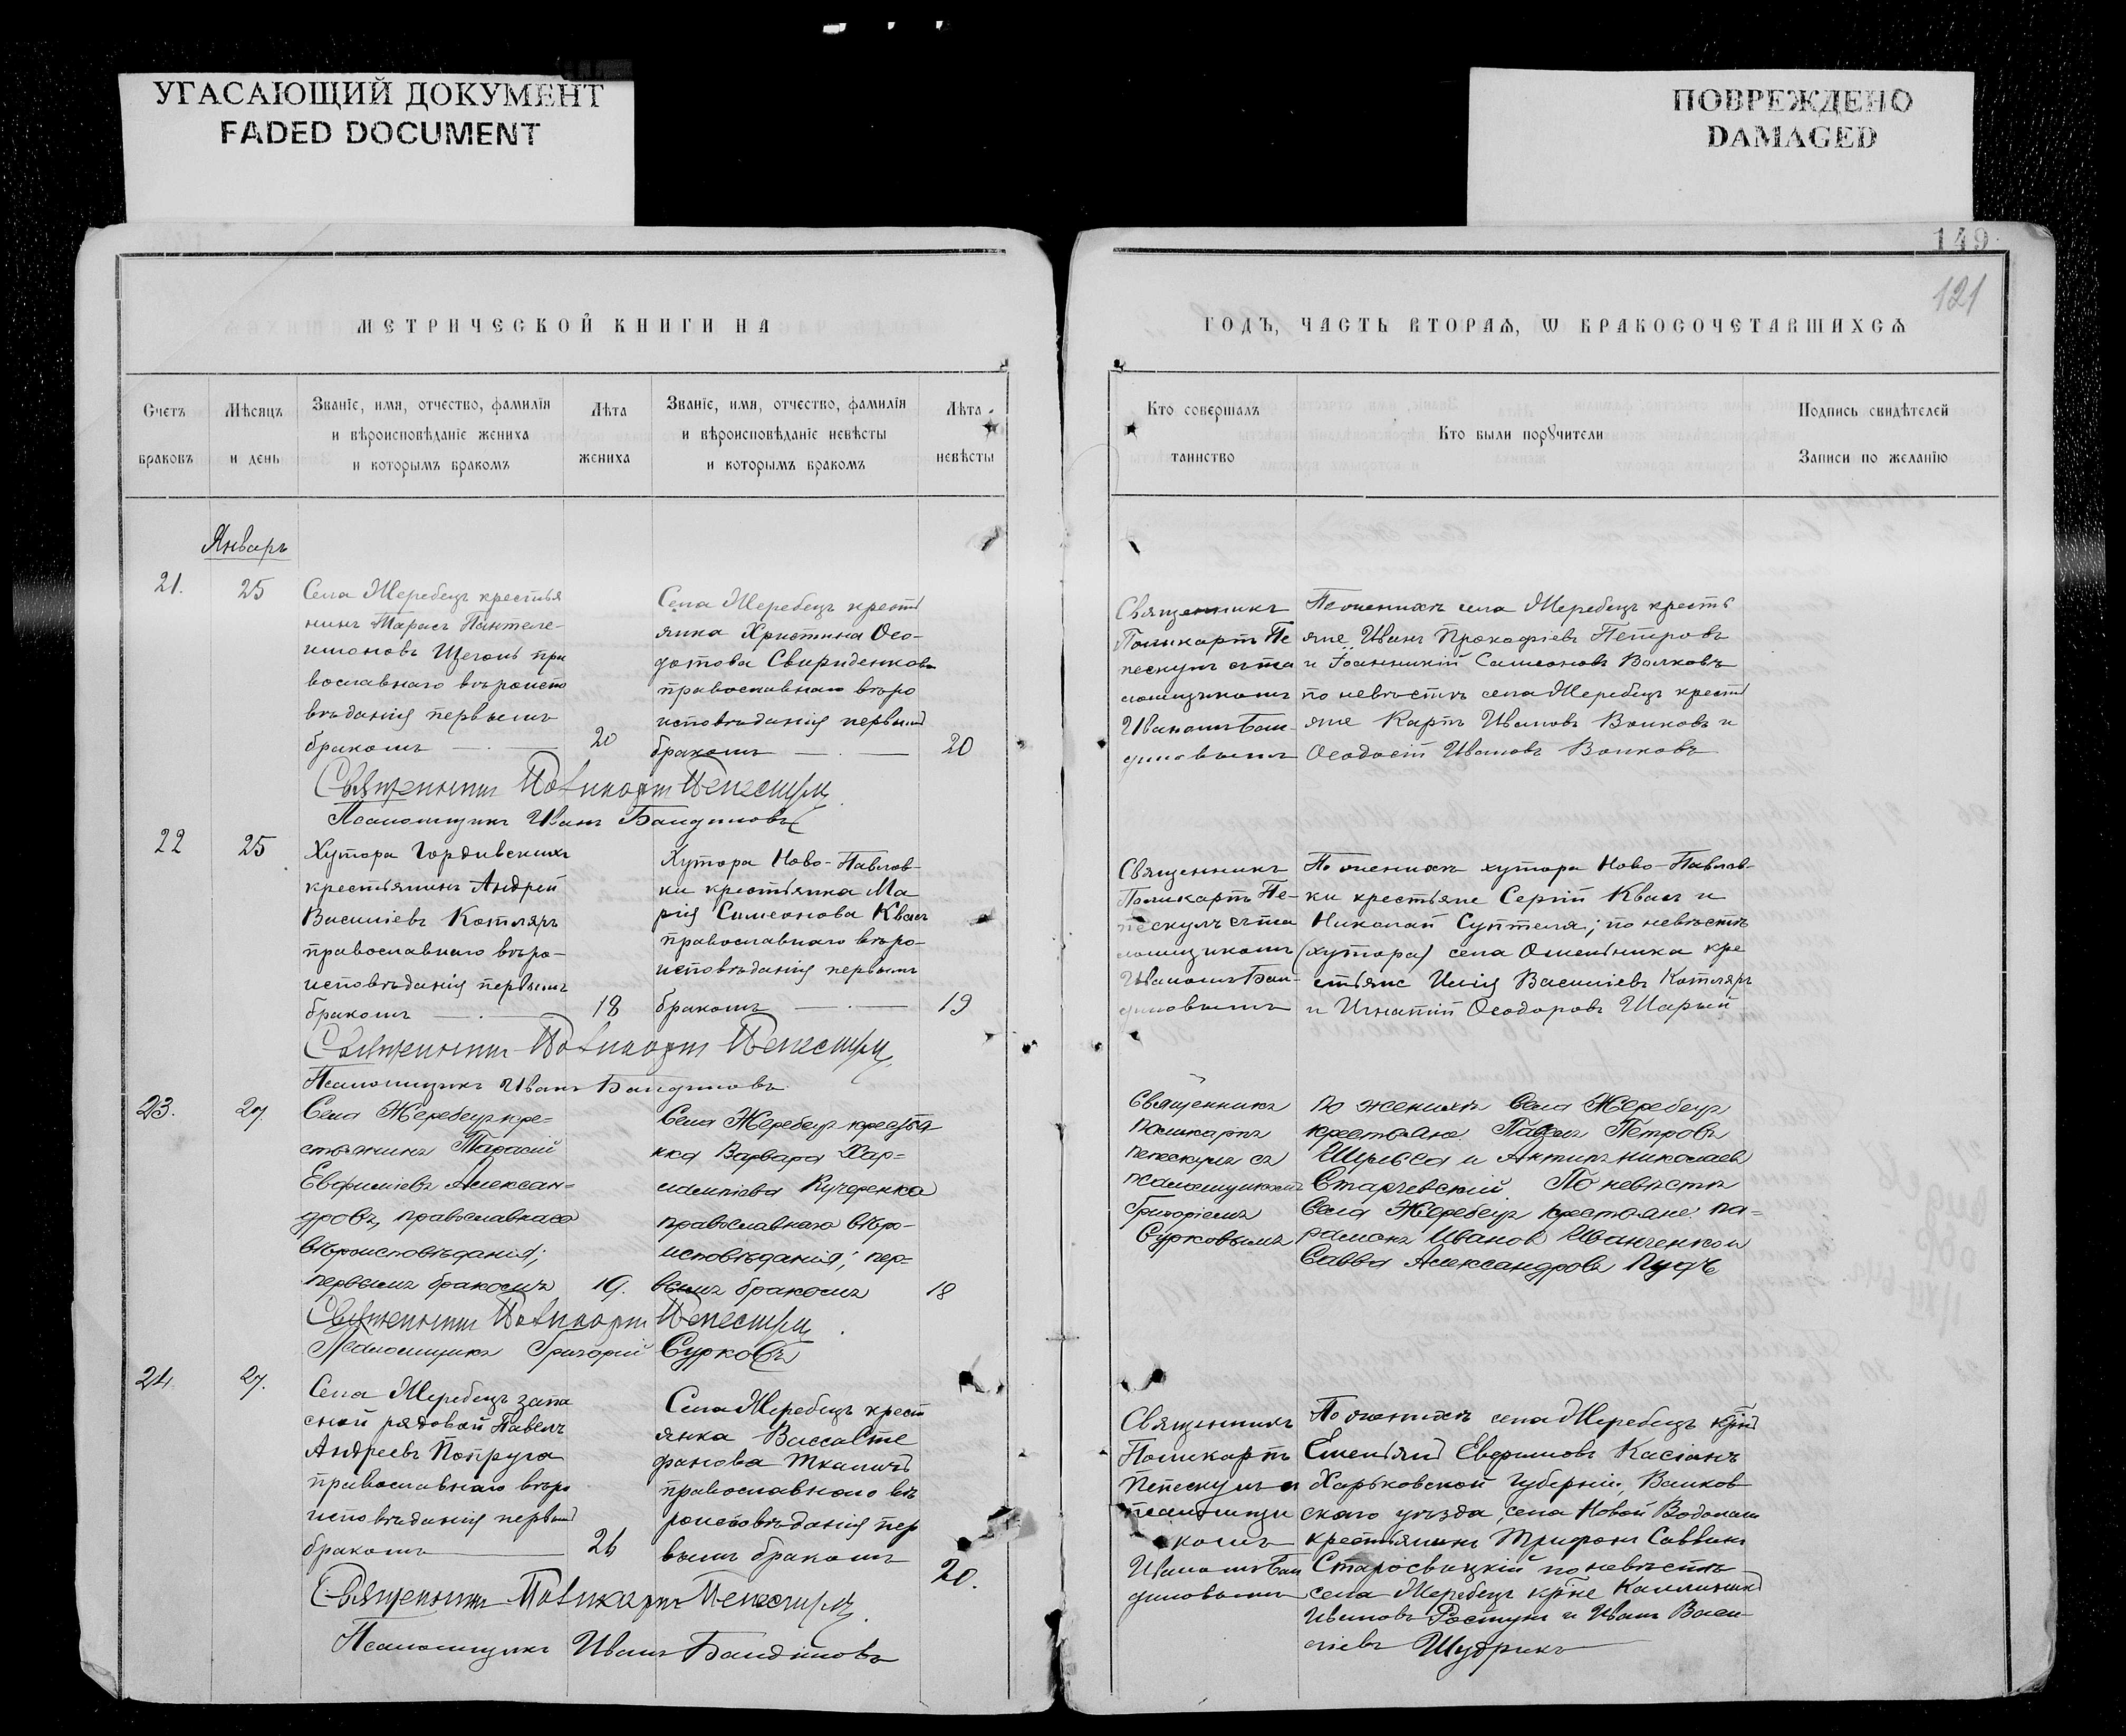 УГАСАЮЩИЙ ДОКУМЕНТ
FADED DOCUMENT
ПОВРЕЖДЕНО
DAMAGED
149
121
МЕТРИЧЕСКОЙ КНИГИ НА
Счетъ браковъ
Мѣсяцъ и день
Званїе, имя, отчество, фамилїя
и вѣроисповѣданїе жениха
и которымъ бракомъ
Лѣта жениха
Званїе, имя, отчество, фамилїя
и вѣроисповѣданїе невѣсты
и которымъ бракомъ
Лѣта невѣсты
ГОДЪ, ЧАСТЬ ВТОРАѦ, Ѡ БРАКОСОЧЕТАВШИХСѦ
Кто совершалъ
таинство
Кто были порꙋчители
Подпись свидѣтелей
Записи по желанїю
Январь
21.
25
Села Жеребецъ крестья
нинъ Тарасъ Пантеле-
имоновъ Щеголь пра
вославнаго вѣроиспо
вѣданія первымъ
бракомъ
20
Села Жеребецъ кресть
янка Христина Ѳео-
дотова Свириденкова
православнаго вѣро
исповѣданія первымъ
бракомъ
20
Священникъ
Поликарпъ Пе
пескулъ съ пса
ломщикомъ
Иваномъ Бан-
диновымъ
По женихѣ села Жеребецъ кресть
яне Иванъ Прокофіевъ Петровъ
и Іоанникій Симеоновъ Волковъ
по невѣстѣ села Жеребецъ кресть
яне Карпъ Ивановъ Волковъ и
Ѳеодосій Ивановъ Волковъ
Священникъ Поликарпъ Пепескулъ
Псаломщикъ Иванъ Бандиновъ
22
25
Хутора Гордивскихъ
крестьянинъ Андрей
Василіевъ Котляръ
православнаго вѣро-
исповѣданія первымъ
бракомъ
18
Хутора Ново-Павлов-
ки крестьянка Ма
рія Симеонова Квасъ
православнаго вѣро-
исповѣданія первымъ
бракомъ
19
Священникъ
Поликарпъ Пе-
пескулъ съ пса
ломщикомъ
Иваномъ Бан-
диновымъ
По женихѣ хутора Ново-Павлов-
ки крестьяне Сергій Квасъ и
Николай Суптеля; по невѣстѣ
(хутора) села Омельника кре
стьяне Илія Василіевъ Котляръ
и Игнатій Ѳеодоровъ Шарый
Священникъ Поликарпъ Пепескулъ
Псаломщикъ Иванъ Бандиновъ
23.
27.
Села Жеребецъ кре-
стьянинъ Тарасій
Евфиміевъ Алексан-
дровъ, православнаго
вѣроисповѣданія;
первымъ бракомъ
19.
Села Жеребецъ крестья
нка Варвара Хар-
лампіева Кучеренко
православнаго вѣро-
исповѣданія; пер-
вымъ бракомъ
18
Священникъ
Поликарпъ
Пепескулъ съ
псаломщикомъ
Григоріемъ
Сурковымъ
По женихѣ Села Жеребецъ
крестьяне: Павелъ Петровъ
и Антипъ Николаевъ
Старчевскій. По невѣстѣ
Села Жеребецъ крестьяне: Па-
рамонъ Ивановъ Иванченко и
Савва Александровъ Пудъ
Священникъ Поликарпъ Пепескулъ
Псаломщикъ Григорій Сурковъ
24.
27.
Села Жеребецъ запа
сной рядовой Павелъ
Андреевъ Попруга
православнаго вѣро
исповѣданія первымъ
бракомъ
26
Села Жеребецъ крест
янка Васса Сте
фанова Ткаличъ
православнаго вѣ
роисповѣданія пер
вымъ бракомъ
20.
Священникъ
Поликарпъ
Пепескулъ съ
псаломщи
комъ
Иваномъ Бан
диновымъ
По женихѣ села Жеребецъ
Емельянъ Евфимовъ Касіанъ
Харьковской губерніи, Валков
скаго уѣзда, села Новой Водолаги
крестьянинъ Трифонъ Саввинъ
Старосвицкій по невѣстѣ
села Жеребецъ кр̃не Каллиникъ
Ивановъ Ростунъ и Иванъ Васи-
ліевъ Щудрикъ
Священникъ Поликарпъ Пепескулъ
Псаломщикъ Иванъ Бандиновъ